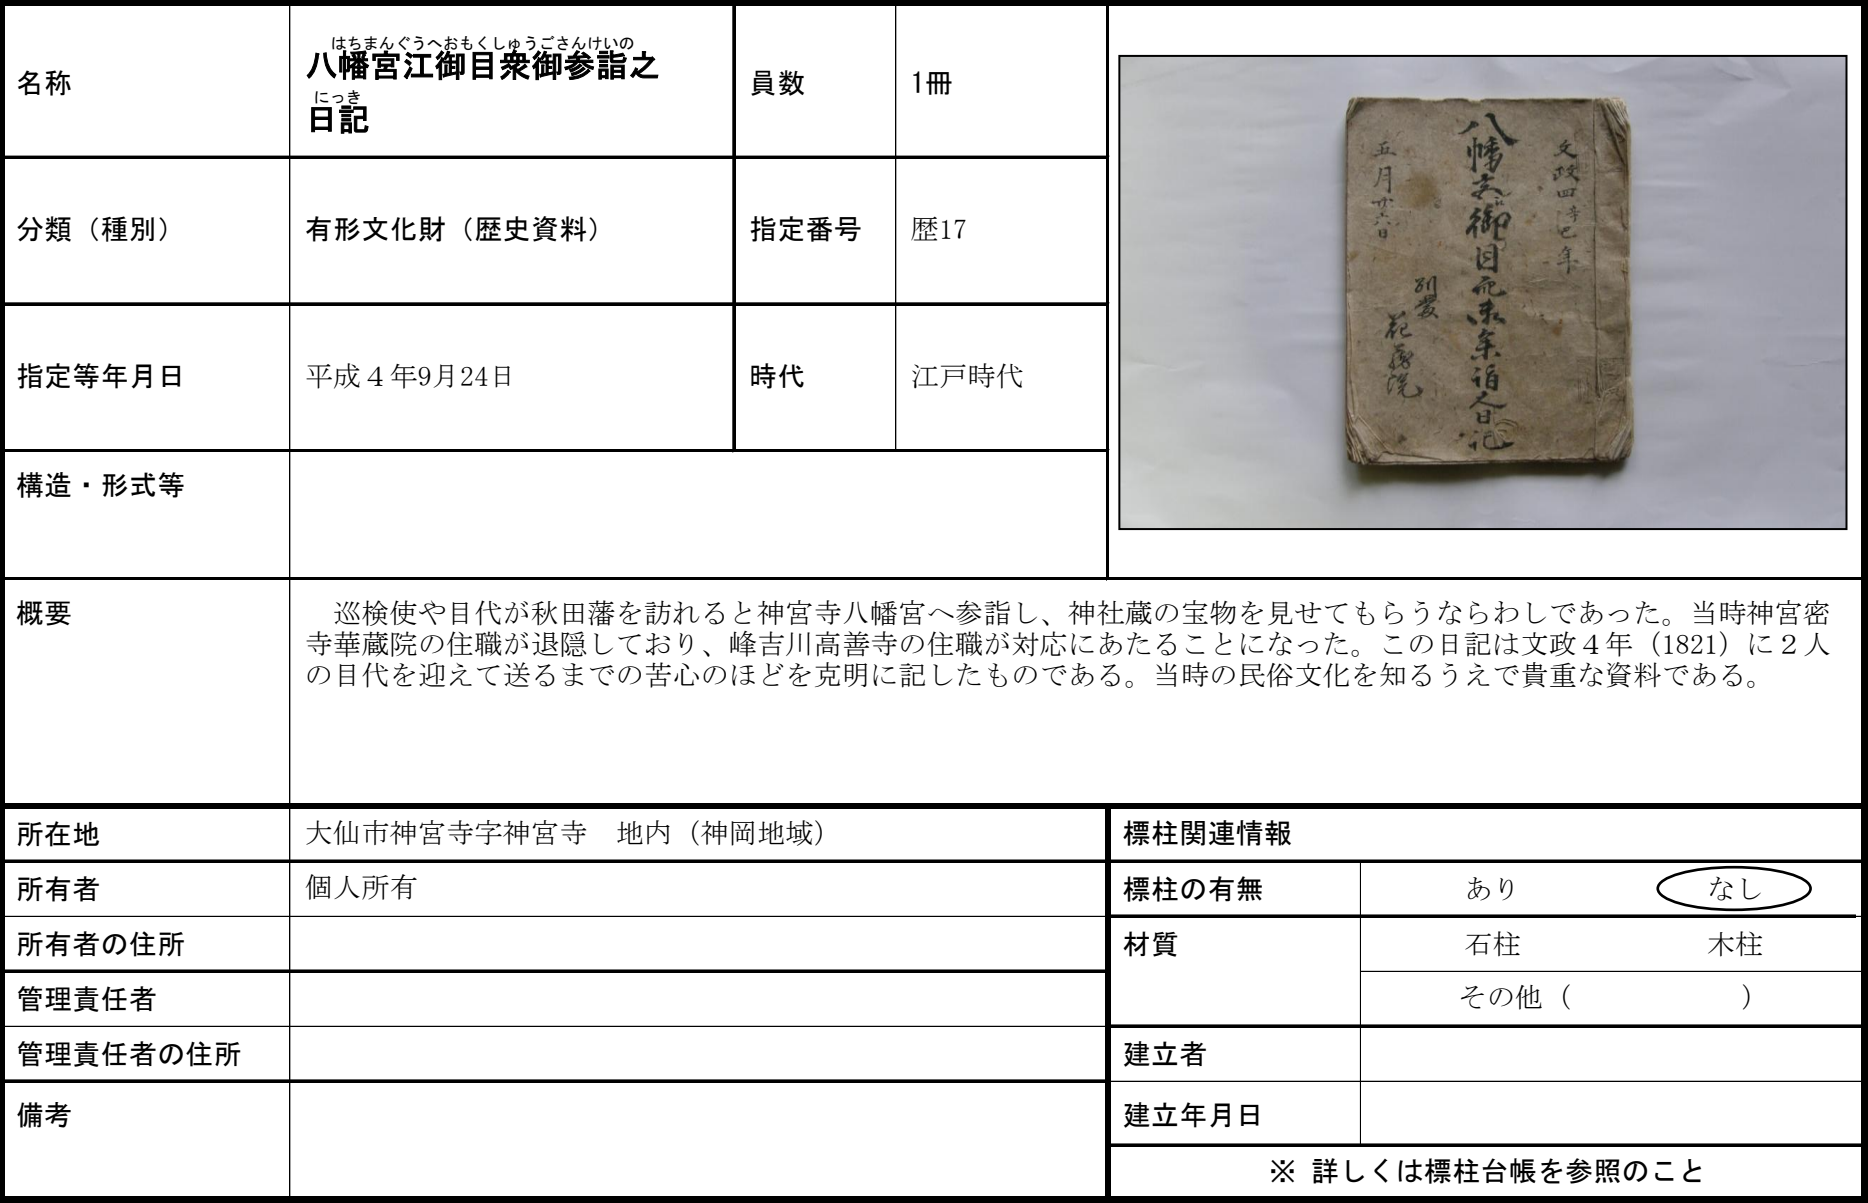 名称
はちまんぐうへおもくしゅうごさんけいの
八幡宮江御目衆御参詣之
にっき
日記
員数
1冊
分類（種別）
有形文化財（歴史資料）
指定番号
歴17
指定等年月日
平成４年9月24日
時代
江戸時代
構造・形式等
文政四辛巳年
八幡宮江御目衆御参詣之日記
別當
花蔵院
五月廿六日
概要
巡検使や目代が秋田藩を訪れると神宮寺八幡宮へ参詣し、神社蔵の宝物を見せてもらうならわしであった。当時神宮密
寺華蔵院の住職が退隠しており、峰吉川高善寺の住職が対応にあたることになった。この日記は文政４年（1821）に２人
の目代を迎えて送るまでの苦心のほどを克明に記したものである。当時の民俗文化を知るうえで貴重な資料である。
所在地
大仙市神宮寺字神宮寺　地内（神岡地域）
所有者
個人所有
所有者の住所
管理責任者
管理責任者の住所
備考
標柱関連情報
標柱の有無
あり
なし
材質
石柱
木柱
その他（　　　　　　）
建立者
建立年月日
※ 詳しくは標柱台帳を参照のこと